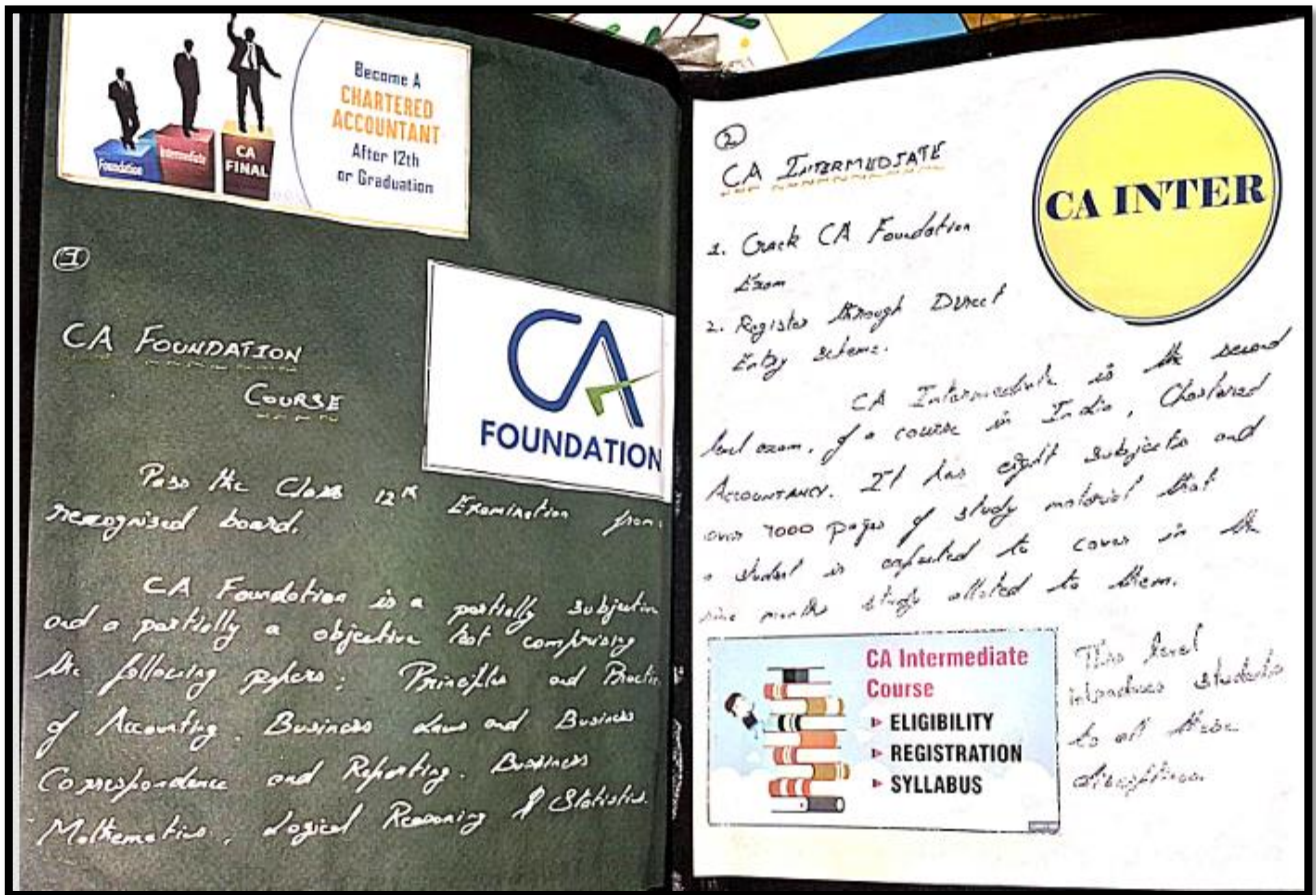 Become A
CHARTERED
ACCOUNTANT
After 12th
or Graduation
Foundation
Intermediate
CA
FINAL
1
CA FOUNDATION
COURSE
CA
FOUNDATION
Pass the Class 12th Examination from
recognised board.
CA Foundation is a partially subjective
and a partially a objective test comprising
the following papers: Principles and Practice
of Accounting. Business Laws and Business
Correspondence and Reporting. Business
Mathematics, Logical Reasoning & Statistics.
2
CA INTERMEDIATE
CA INTER
1. Crack CA Foundation
Exam
2. Register through Direct
Entry scheme.
CA Intermediate is the second
level exam, of a course in India, Chartered
Accountancy. It has eight subjects and
over 7000 pages of study material that
a student is expected to cover in the
nine months study alloted to them.
CA Intermediate
Course
ELIGIBILITY
REGISTRATION
SYLLABUS
This level
introduces students
to all these